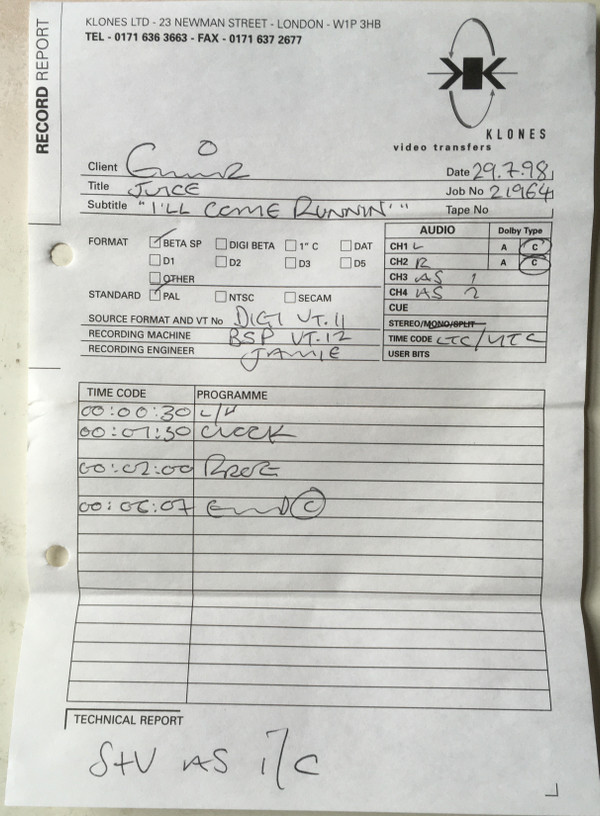 KLONES LTD - 23 NEWMAN STREET - LONDON - W1P 3HB
TEL - 0171 636 3663 - FAX - 0171 637 2677
RECORD REPORT
KLONES
video transfers
Client
Date 29.7.98
Title JUICE
Job No 21964
Subtitle "I'LL COME RUNNIN'"
Tape No
FORMAT BETA SP DIGI BETA 1" C DAT
D1 D2 D3 D5
OTHER
STANDARD PAL NTSC SECAM
SOURCE FORMAT AND VT No DIGI VT.11
RECORDING MACHINE BSP VT.12
RECORDING ENGINEER JAMIE
AUDIO Dolby Type
CH1 L A C
CH2 R A C
CH3 AS 1
CH4 AS 2
CUE
STEREO/MONO/SPLIT
TIME CODE LTC/VITC
USER BITS
TIME CODE PROGRAMME
00:00:30 L/U
00:01:30 CLOCK
00:02:00 PROG
00:06:07 END C
TECHNICAL REPORT
S+V AS I/C